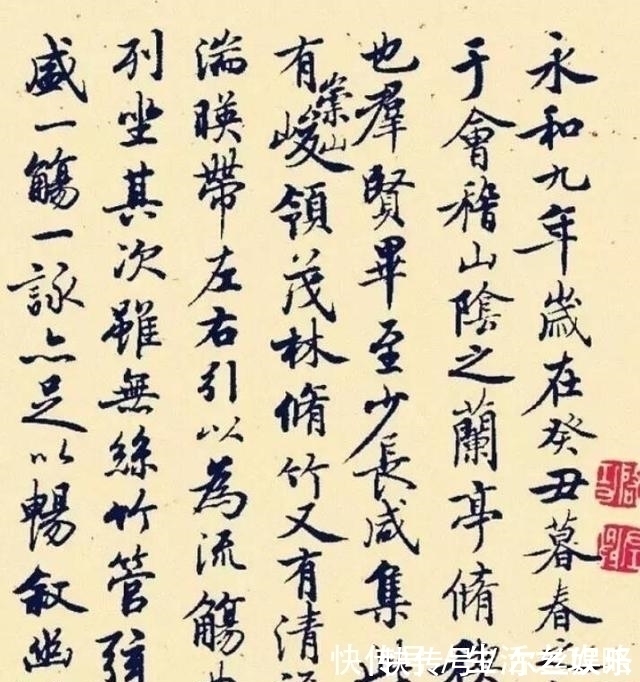 永和九年歲在癸丑暮春
于會稽山陰之蘭亭脩
也羣賢畢至少長咸集
有崇山峻領茂林脩竹又有清
湍暎帶左右引以為流觴
列坐其次雖無絲竹管弦
盛一觴一詠亦足以暢敘幽